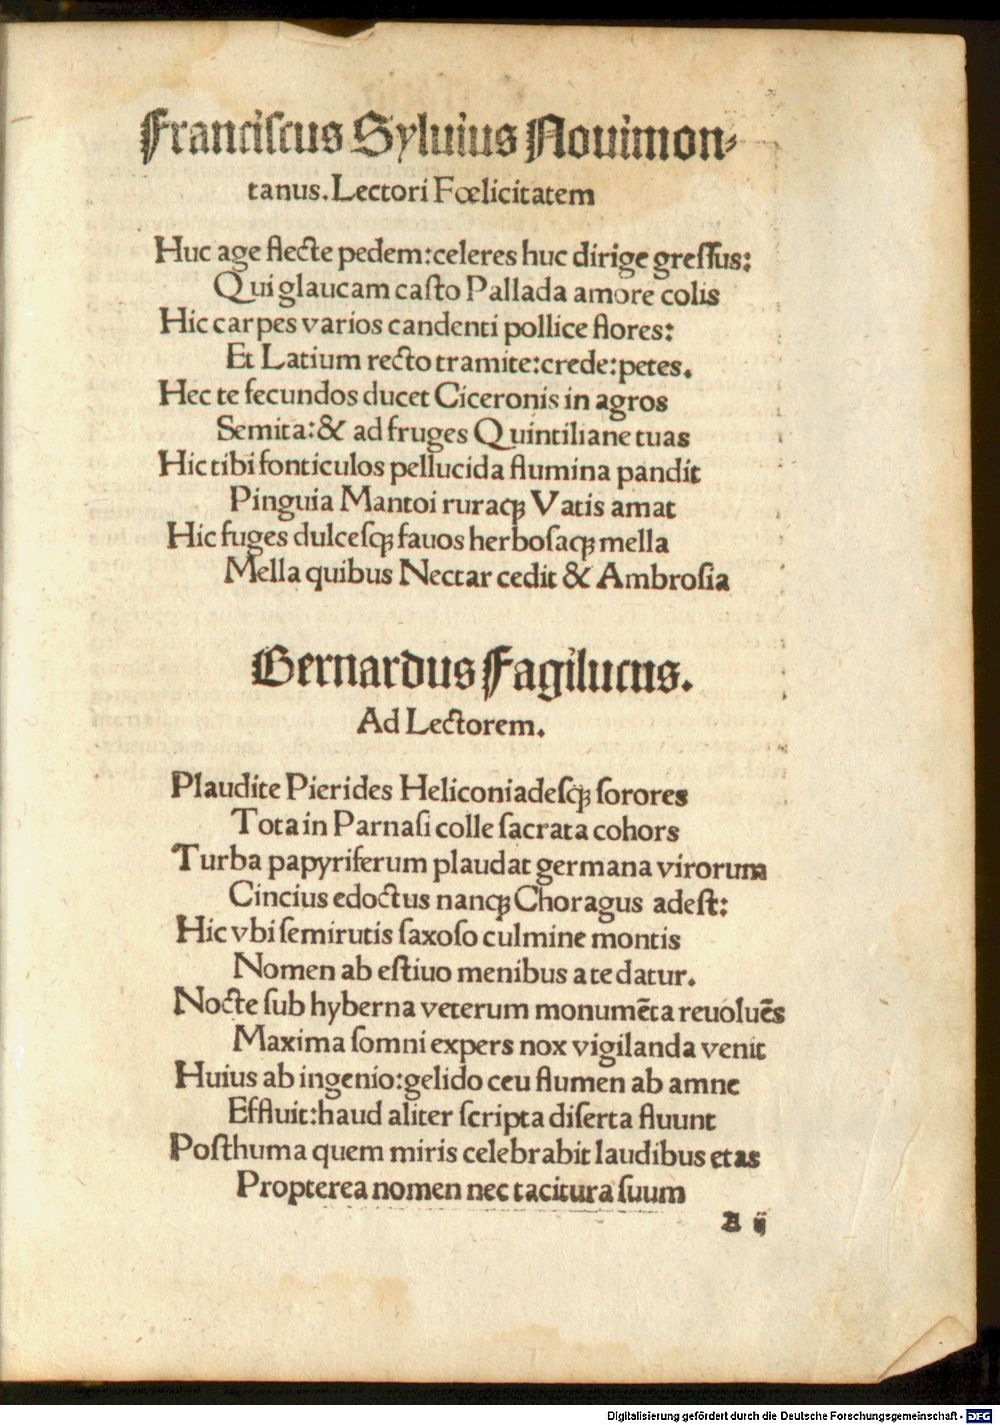 Franciſcus Syluius Nouimon⸗
tanus. Lectori Fœlicitatem
Huc age flecte pedem: celeres huc dirige greſſus:
Qui glaucam caſto Pallada amore colis
Hic carpes varios candenti pollice flores:
Et Latium recto tramite: crede: petes.
Hec te fecundos ducet Ciceronis in agros
Semita: & ad fruges Quintiliane tuas
Hic tibi fonticulos pellucida flumina pandit
Pinguia Mantoi ruraqꝫ Vatis amat
Hic fuges dulceſqꝫ fauos herboſaqꝫ mella
Mella quibus Nectar cedit & Ambroſia
Bernardus Fagilucus.
Ad Lectorem.
Plaudite Pierides Heliconiadeſqꝫ ſorores
Tota in Parnaſi colle ſacrata cohors
Turba papyriferum plaudat germana virorum
Cincius edoctus nanqꝫ Choragus adeſt:
Hic vbi ſemirutis ſaxoſo culmine montis
Nomen ab eſtiuo menibus a te datur.
Nocte ſub hyberna veterum monumēta reuoluēs
Maxima ſomni expers nox vigilanda venit
Huius ab ingenio: gelido ceu flumen ab amne
Effluit: haud aliter ſcripta diſerta fluunt
Poſthuma quem miris celebrabit laudibus etas
Propterea nomen nec tacitura ſuum
A ij
Digitalisierung gefördert durch die Deutsche Forschungsgemeinschaft - DFG